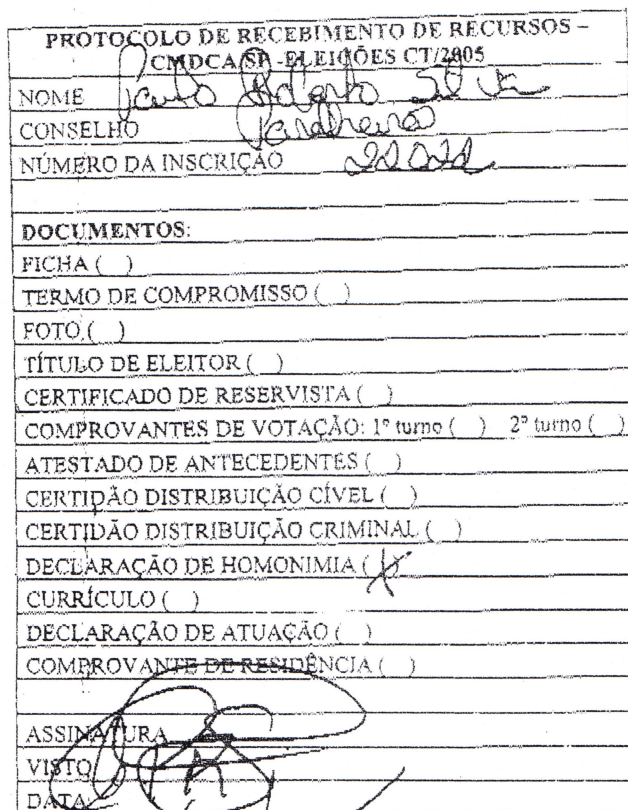 PROTOCOLO DE RECEBIMENTO DE RECURSOS –
CMDCA/SP -ELEIÇÕES CT/2005
NOME Paulo Roberto Silva
CONSELHO Parelheiros
NÚMERO DA INSCRIÇÃO
DOCUMENTOS:
FICHA ( )
TERMO DE COMPROMISSO ( )
FOTO ( )
TÍTULO DE ELEITOR ( )
CERTIFICADO DE RESERVISTA ( )
COMPROVANTES DE VOTAÇÃO: 1º turno ( ) 2º turno ( )
ATESTADO DE ANTECEDENTES ( )
CERTIDÃO DISTRIBUIÇÃO CÍVEL ( )
CERTIDÃO DISTRIBUIÇÃO CRIMINAL ( )
DECLARAÇÃO DE HOMONIMIA (X)
CURRÍCULO ( )
DECLARAÇÃO DE ATUAÇÃO ( )
COMPROVANTE DE RESIDÊNCIA ( )
ASSINATURA
VISTO
DATA